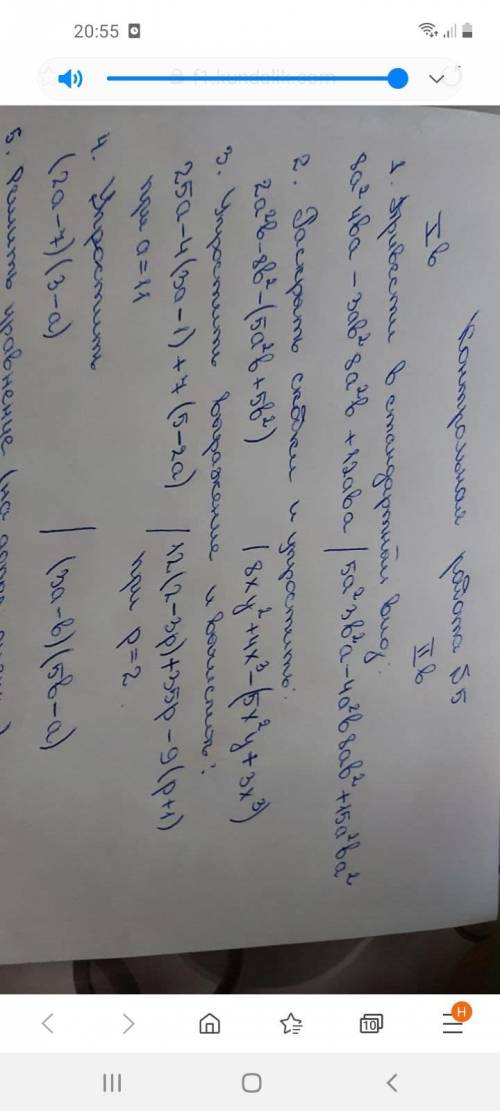 20:55
f1.kundelik.com
Контрольная работа №5
I в
II в
1. Привести в стандартный вид:
8a² 4ba - 3ab² 8a²b + 12aba | 5a² 3b²a - 4a²b 8ab² + 15a²ba²
2. Раскрыть скобки и упростить:
2a²b - 8b² - (5a²b + 5b²) | 8xy² + 4x³ - (5x²y + 3x³)
3. Упростить выражение и вычислить:
25a - 4(3a - 1) + 7(5 - 2a) | 12(2 - 3p) + 35p - 9(p + 1)
при a = 11 при p = 2
4. Упростить
(2a - 7)(3 - a) | (3a - b)(5b - a)
5. Решить уравнение
10
H